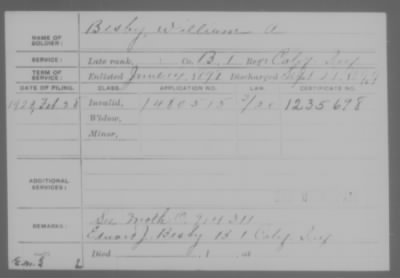 NAME OF SOLDIER: Besby, William A
SERVICE: Late rank, Co. B. 1 Reg't Calif Inf
TERM OF SERVICE: Enlisted Discharged Sept 21, 1899
DATE OF FILING. CLASS. APPLICATION NO. LAW. CERTIFICATE NO.
Feb 28 Invalid, 1480515 1235698
Widow,
Minor,
ADDITIONAL SERVICES:
REMARKS: See Moth C.
Edward J. Besby B 1 Calif Inf
Died , 1 , at